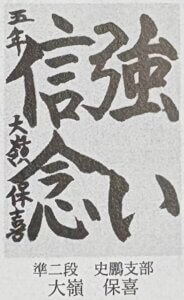 強い
信念
五年 大嶺保喜
準二段 史鵬支部
大嶺 保喜